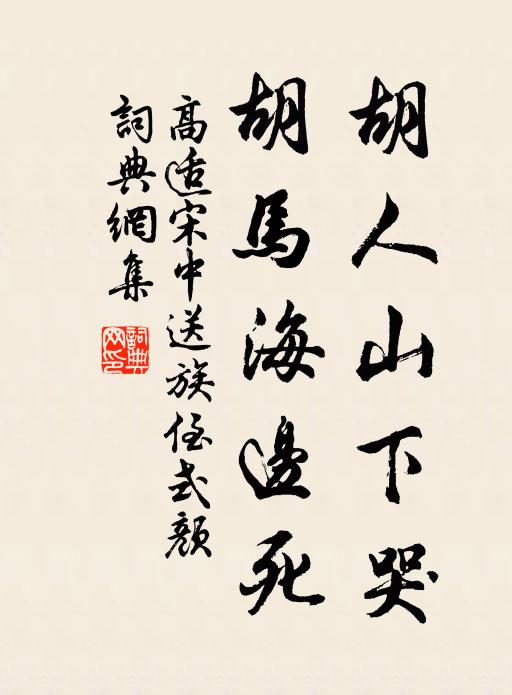 胡人山下哭
胡馬海邊死
高适宋中送族侄式顔
詞典網集
詞典
网印